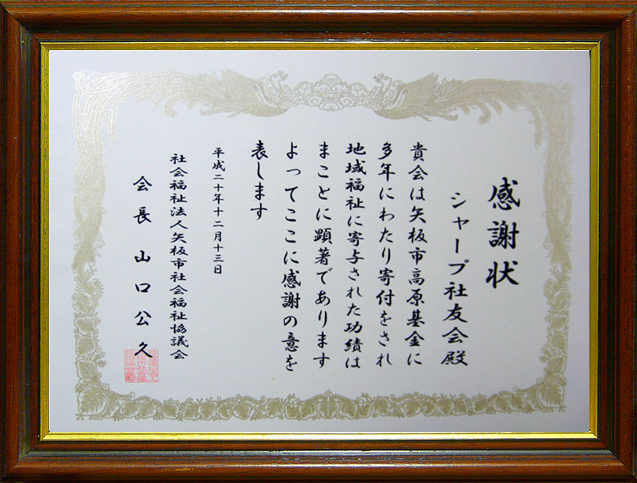 感謝状
シャープ社友会殿
貴会は矢板市高原基金に
多年にわたり寄付をされ
地域福祉に寄与された功績は
まことに顕著であります
よってここに感謝の意を
表します
平成二十年十二月十三日
社会福祉法人矢板市社会福祉協議会
会長 山口公久